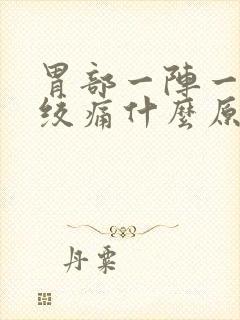 胃部一陣一
絞痛什麼原
丹粟